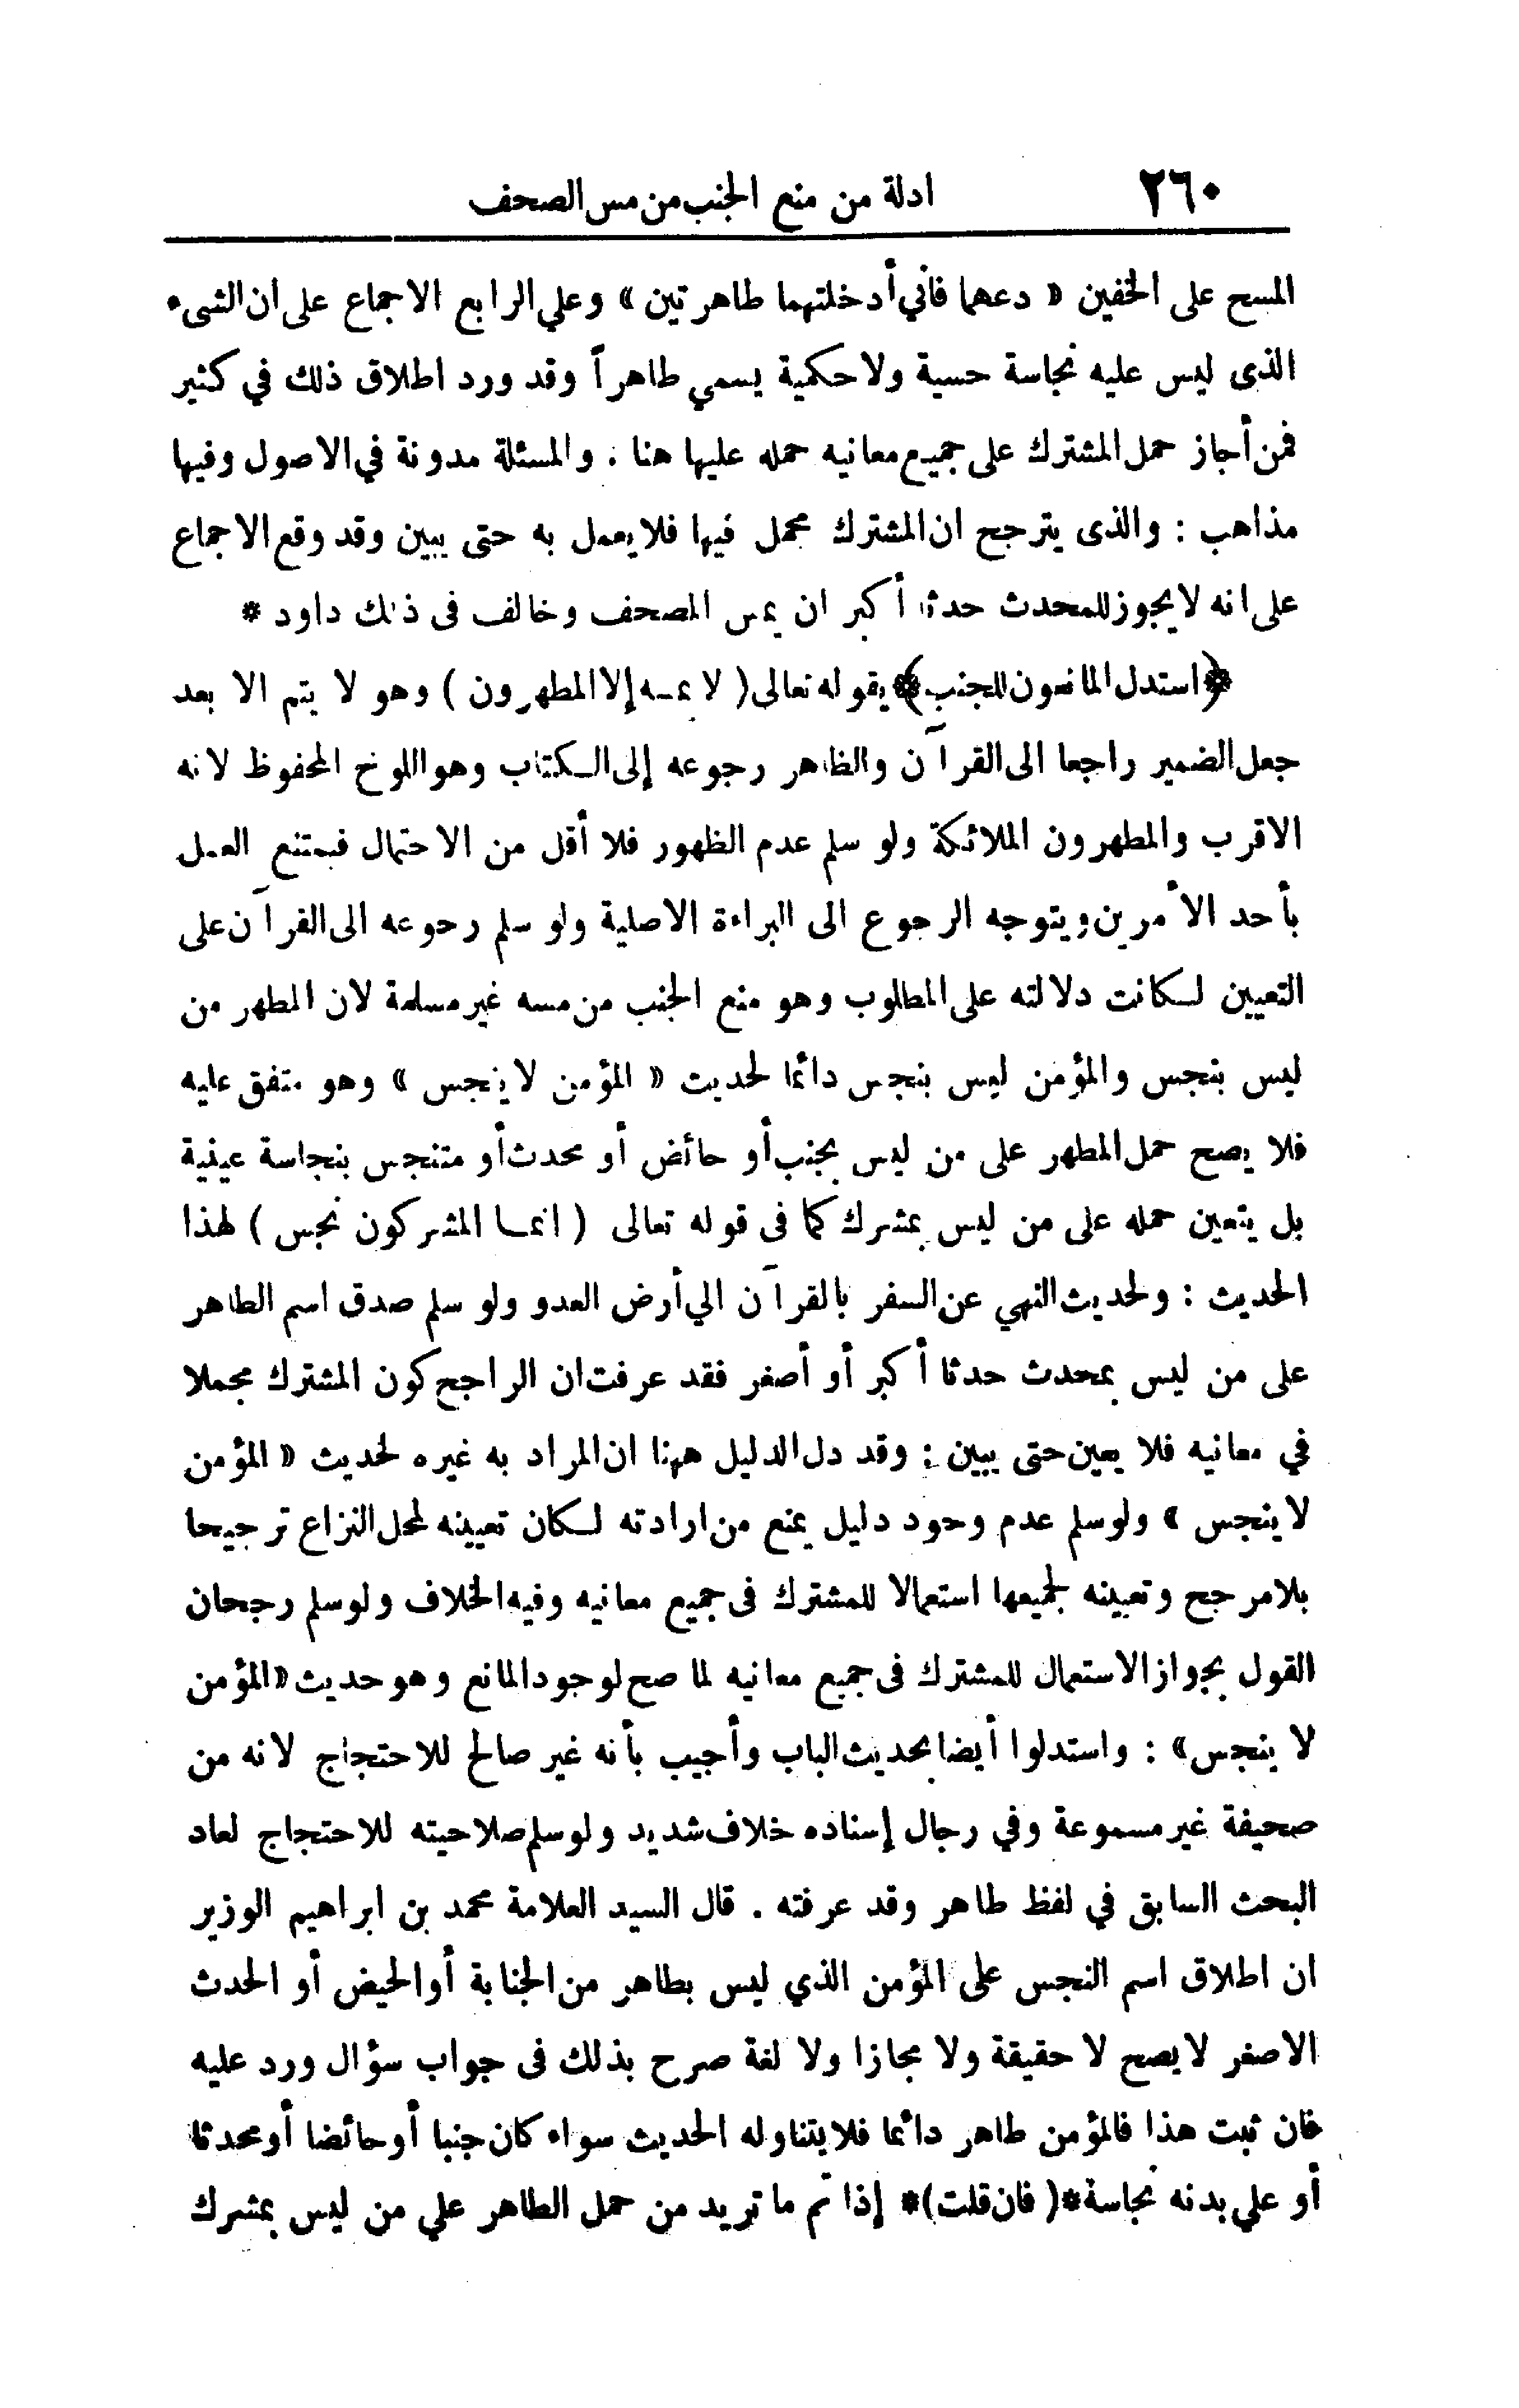 ٢٦٠
ادلة من منع الجنب من مس الصحف
المسح على الخفين « دعهما فأني أدخلتهما طاهرتين » وعلي الرابع الاجماع على ان الشىء
الذى ليس عليه نجاسة حسية ولا حكمية يسمي طاهراً وقد ورد اطلاق ذلك في كثير
فمن أجاز حمل المشترك على جميع معانيه حمله عليها هنا . والمسئلة مدونة في الاصول وفيها
مذاهب : والذى يترجح ان المشترك مجمل فيها فلا يعمل به حتى يبين وقد وقع الاجماع
على انه لا يجوز للمحدث حدثا أكبر ان يمس المصحف وخالف فى ذلك داود *
﴿* استدل المانعون للجنب *﴾ بقوله تعالى ( لا يمسه إلا المطهرون ) وهو لا يتم الا بعد
جعل الضمير راجعا الى القرآن والظاهر رجوعه إلى الكتاب وهو اللوح المحفوظ لانه
الاقرب والمطهرون الملائكة ولو سلم عدم الظهور فلا أقل من الاحتمال فيمتنع العمل
بأحد الأمرين ويتوجه الرجوع الى البراءة الاصلية ولو سلم رجوعه الى القرآن على
التعيين لكانت دلالته على المطلوب وهو منع الجنب من مسه غير مسلمة لان المطهر من
ليس بنجس والمؤمن ليس بنجس دائما لحديث « المؤمن لا ينجس » وهو متفق عليه
فلا يصح حمل المطهر على من ليس بجنب أو حائض أو محدث أو متنجس بنجاسة عينية
بل يتعين حمله على من ليس بمشرك كما فى قوله تعالى ( انما المشركون نجس ) لهذا
الحديث : ولحديث النهي عن السفر بالقرآن الي أرض العدو ولو سلم صدق اسم الطاهر
على من ليس بمحدث حدثا أكبر أو أصغر فقد عرفت ان الراجح كون المشترك مجملا
في معانيه فلا يعين حتى يبين : وقد دل الدليل ههنا ان المراد به غيره لحديث « المؤمن
لا ينجس » ولو سلم عدم وجود دليل يمنع من ارادته لكان تعيينه لمحل النزاع ترجيحا
بلا مرجح وتعيينه لجميعها استعمالا للمشترك فى جميع معانيه وفيه الخلاف ولو سلم رجحان
القول بجواز الاستعمال للمشترك فى جميع معانيه لما صح لوجود المانع وهو حديث « المؤمن
لا ينجس » : واستدلوا أيضا بحديث الباب وأجيب بأنه غير صالح للاحتجاج لانه من
صحيفة غير مسموعة وفي رجال إسناده خلاف شديد ولو سلم صلاحيته للاحتجاج لعاد
البحث السابق في لفظ طاهر وقد عرفته . قال السيد العلامة محمد بن ابراهيم الوزير
ان اطلاق اسم النجس على المؤمن الذي ليس بطاهر من الجنابة أو الحيض أو الحدث
الاصغر لا يصح لا حقيقة ولا مجازا ولا لغة صرح بذلك فى جواب سؤال ورد عليه
فان ثبت هذا فالمؤمن طاهر دائما فلا يتناوله الحديث سواء كان جنبا أو حائضا أو محدثا
أو علي بدنه نجاسة *( فان قلت )* إذا تم ما تريد من حمل الطاهر علي من ليس بمشرك